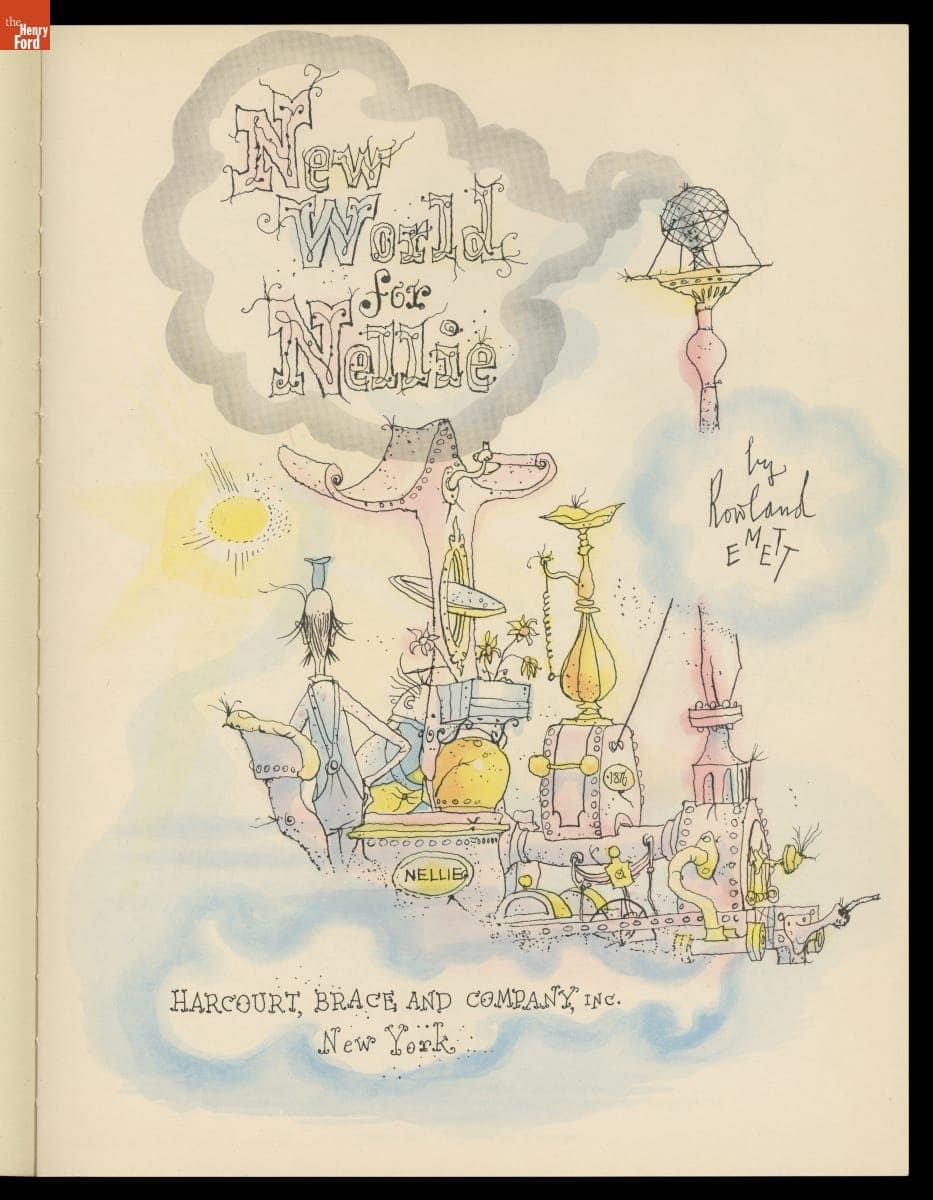 the
Henry
Ford
New
World
for
Nellie
by
Rowland
EMETT
1876
NELLIE
HARCOURT, BRACE AND COMPANY, INC.
New York